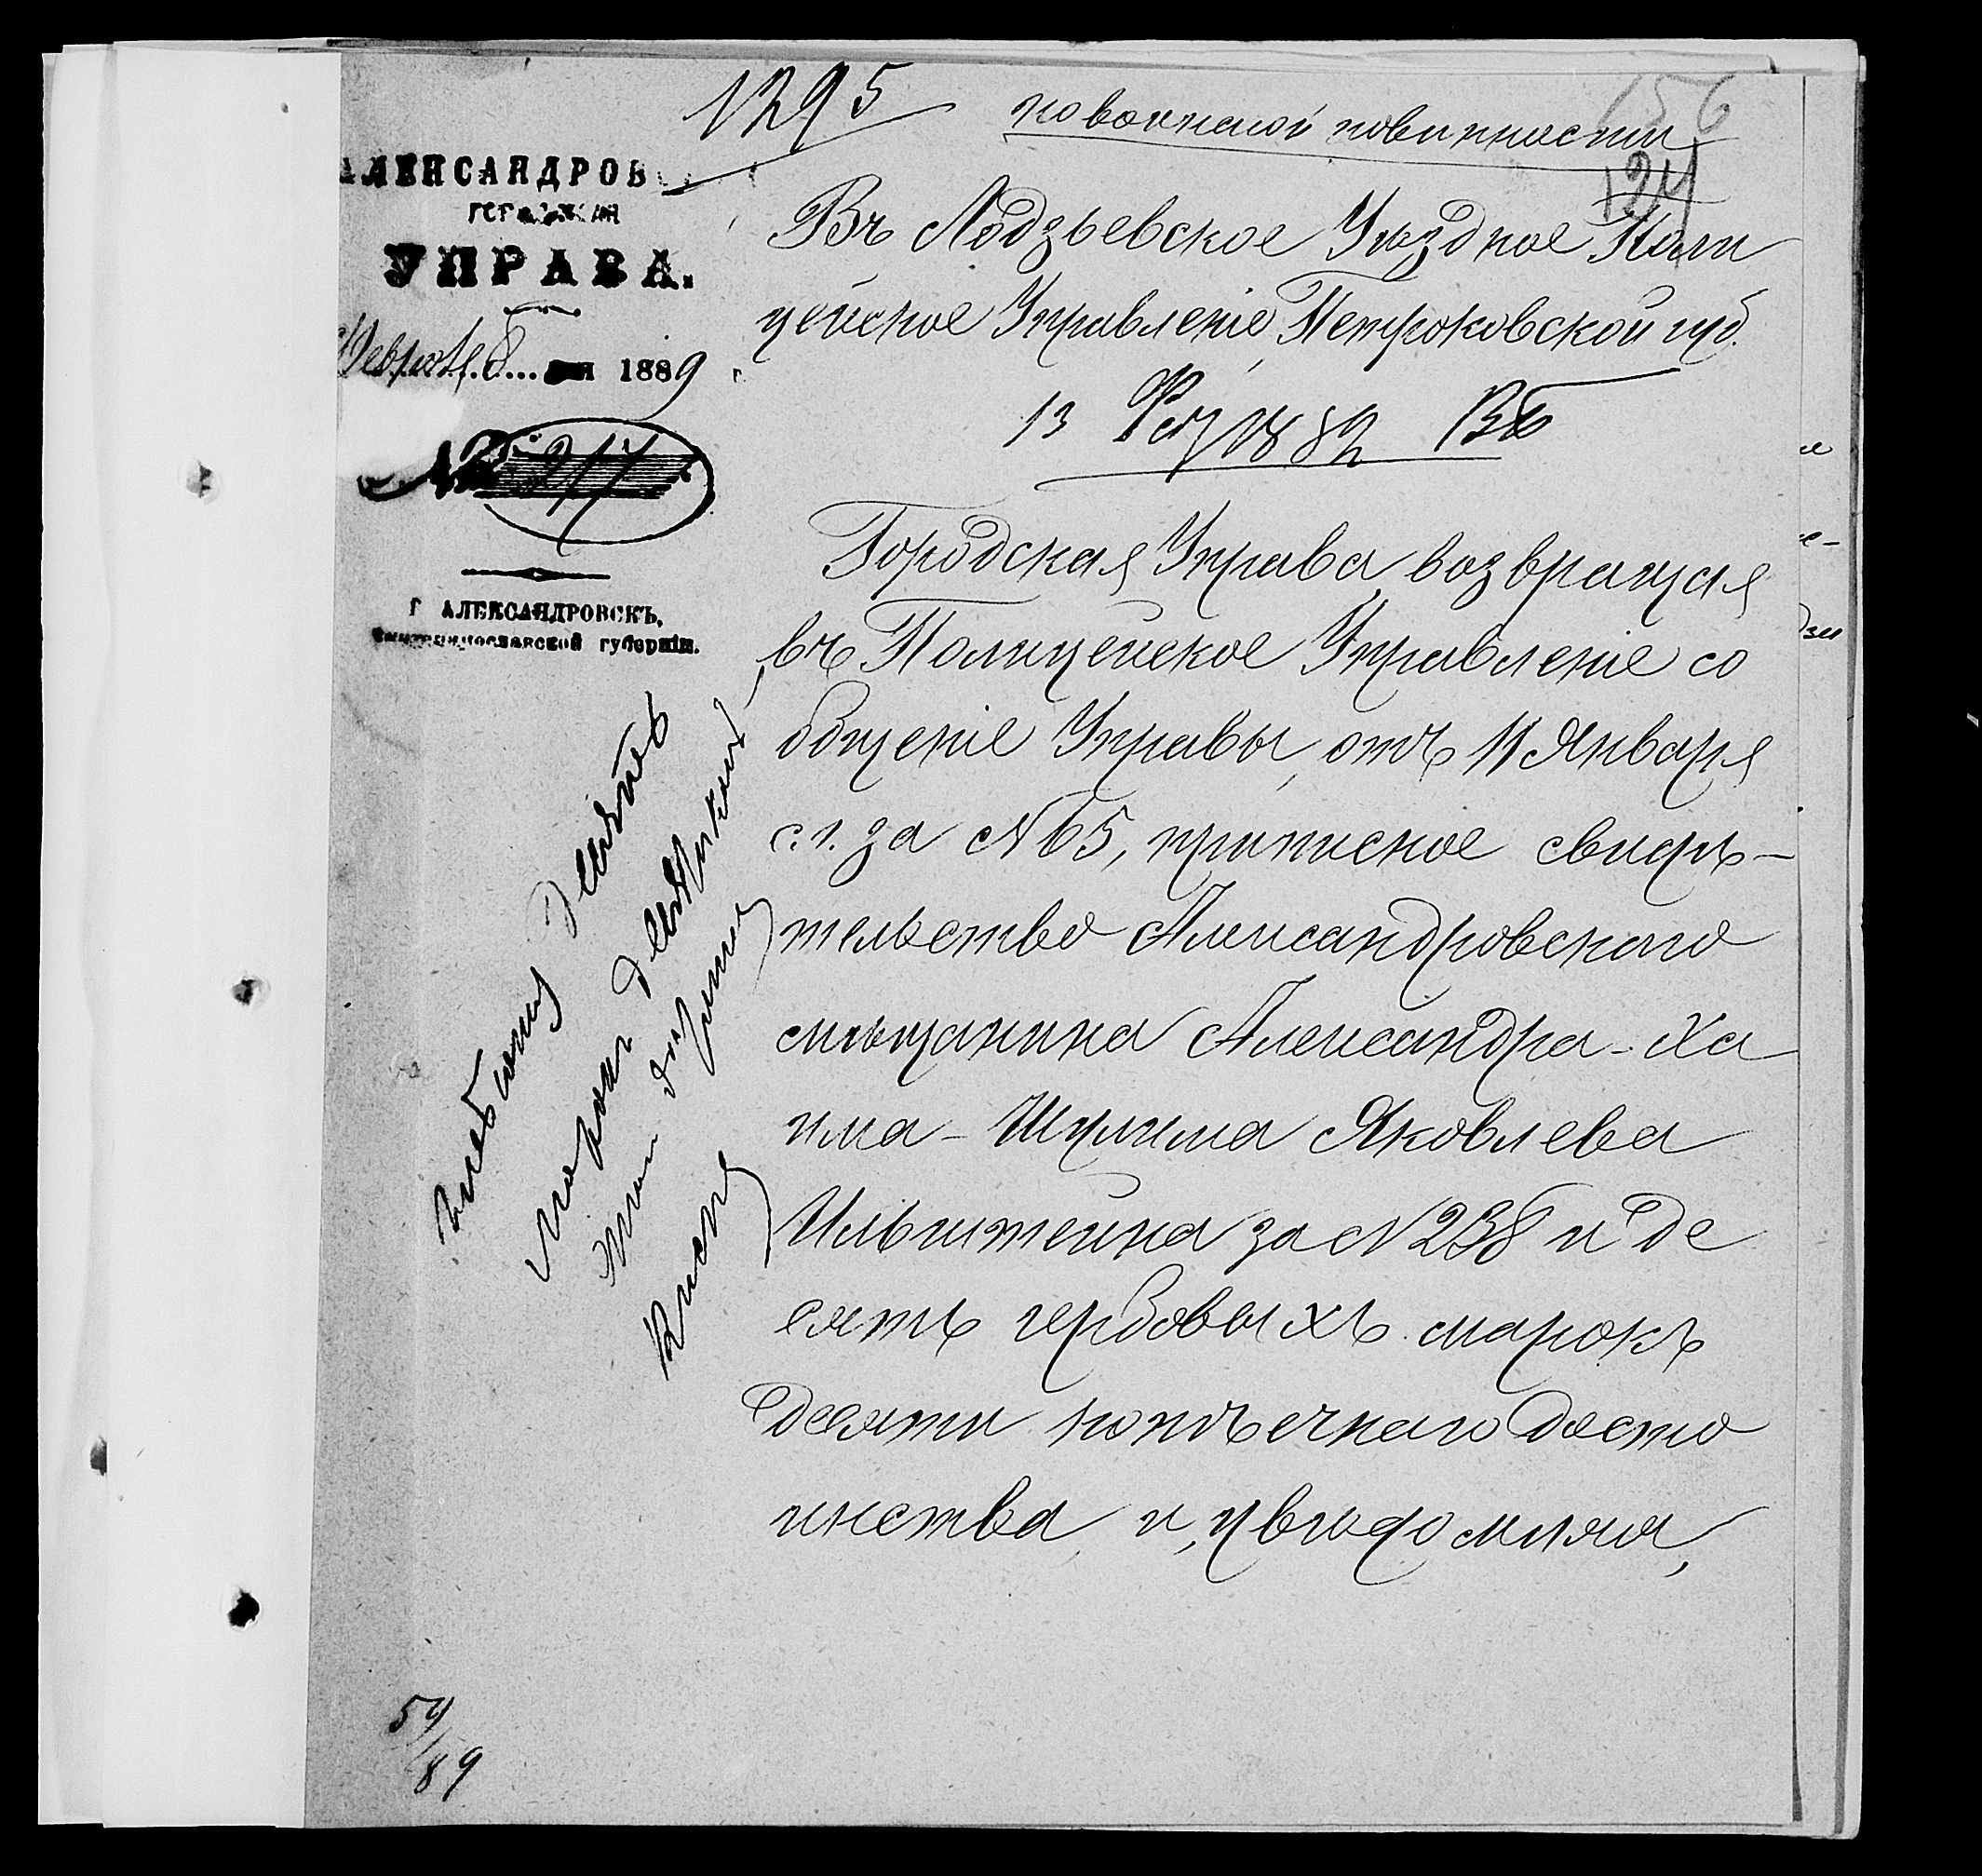 1295
по воинской повинности
156
124
АЛЕКСАНДРОВ
УПРАВА.
Февраля 8 дня 1889
№ 217
Г АЛЕКСАНДРОВСКЪ,
Екатеринославской губерніи.
Въ Лодзьевское Уѣздное Поли
цейское Управленіе, Петроковской губ.
13
Городская Управа возвращая
въ Полицейское Управленіе со
общеніе Управы, отъ 11 Января
с. г. за № 65, приписное свидѣ-
тельство Александровскаго
мѣщанина Александра-Ха
има-Шулима Яковлева
Ильштейна за № 238 и де
сять гербовыхъ марокъ
десяти копѣечнаго досто
инства, и, увѣдомляя,
марокъ
59/89